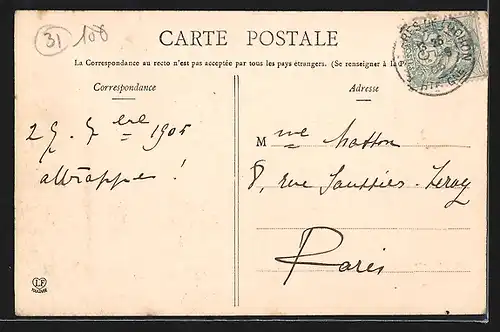 31 108
CARTE POSTALE
La Correspondance au recto n'est pas acceptée par tous les pays étrangers. (Se renseigner à la P
Correspondance
Adresse
1905
attrappe !
Mme Matton
8, rue Saussier-Leroy
Paris
LF